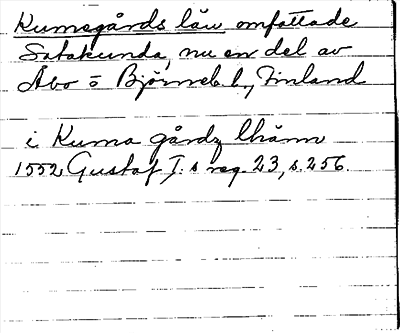 Kumogårds län omfattade
Satakunda, nu en del av
Åbo o Björneb. l., Finland
i Kuma gårdz lhänn
1552 Gustaf I:s reg. 23, s. 256.